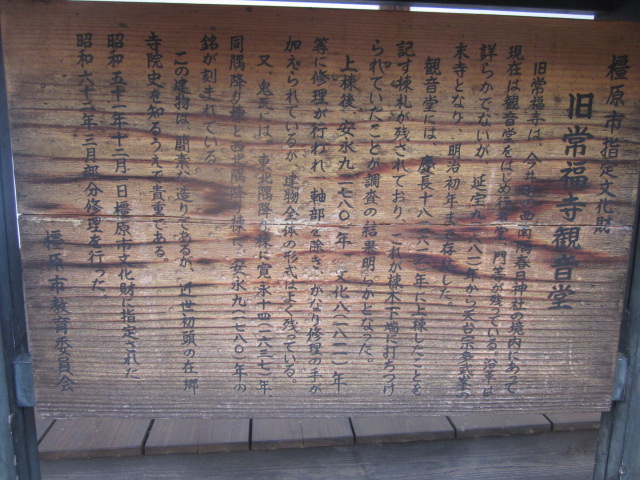 橿原市指定文化財
旧常福寺観音堂
旧常福寺は、今井町の西南隅春日神社の境内にあって
現在は観音堂をはじめ行者堂、門等が残っている。沿革は
詳らかでないが、延宝九(一六八一)年から天台宗多武峯の
末寺となり、明治初年まで存続した。
観音堂には、慶長十八(一六一三)年に上棟したことを
記す棟札が残されており、これが棟木下端に打ちつけ
られていたことが調査の結果明らかとなった。
上棟後、安永九(一七八〇)年、文化八(一八一一)年
等に修理が行われ、軸部を除き、かなり修理の手が
加えられているが、建物全体の形式はよく残っている。
又、鬼瓦には、東北隅降り棟に寛永十四(一六三七)年、
同隅降り棟と西北隅降り棟に、安永九(一七八〇)年の
銘が刻まれている。
この建物は、簡素な造りであるが、近世初頭の在郷
寺院史を知るうえで貴重である。
昭和五十一年十二月一日橿原市文化財に指定された
昭和六十二年三月部分修理を行った。
橿原市教育委員会